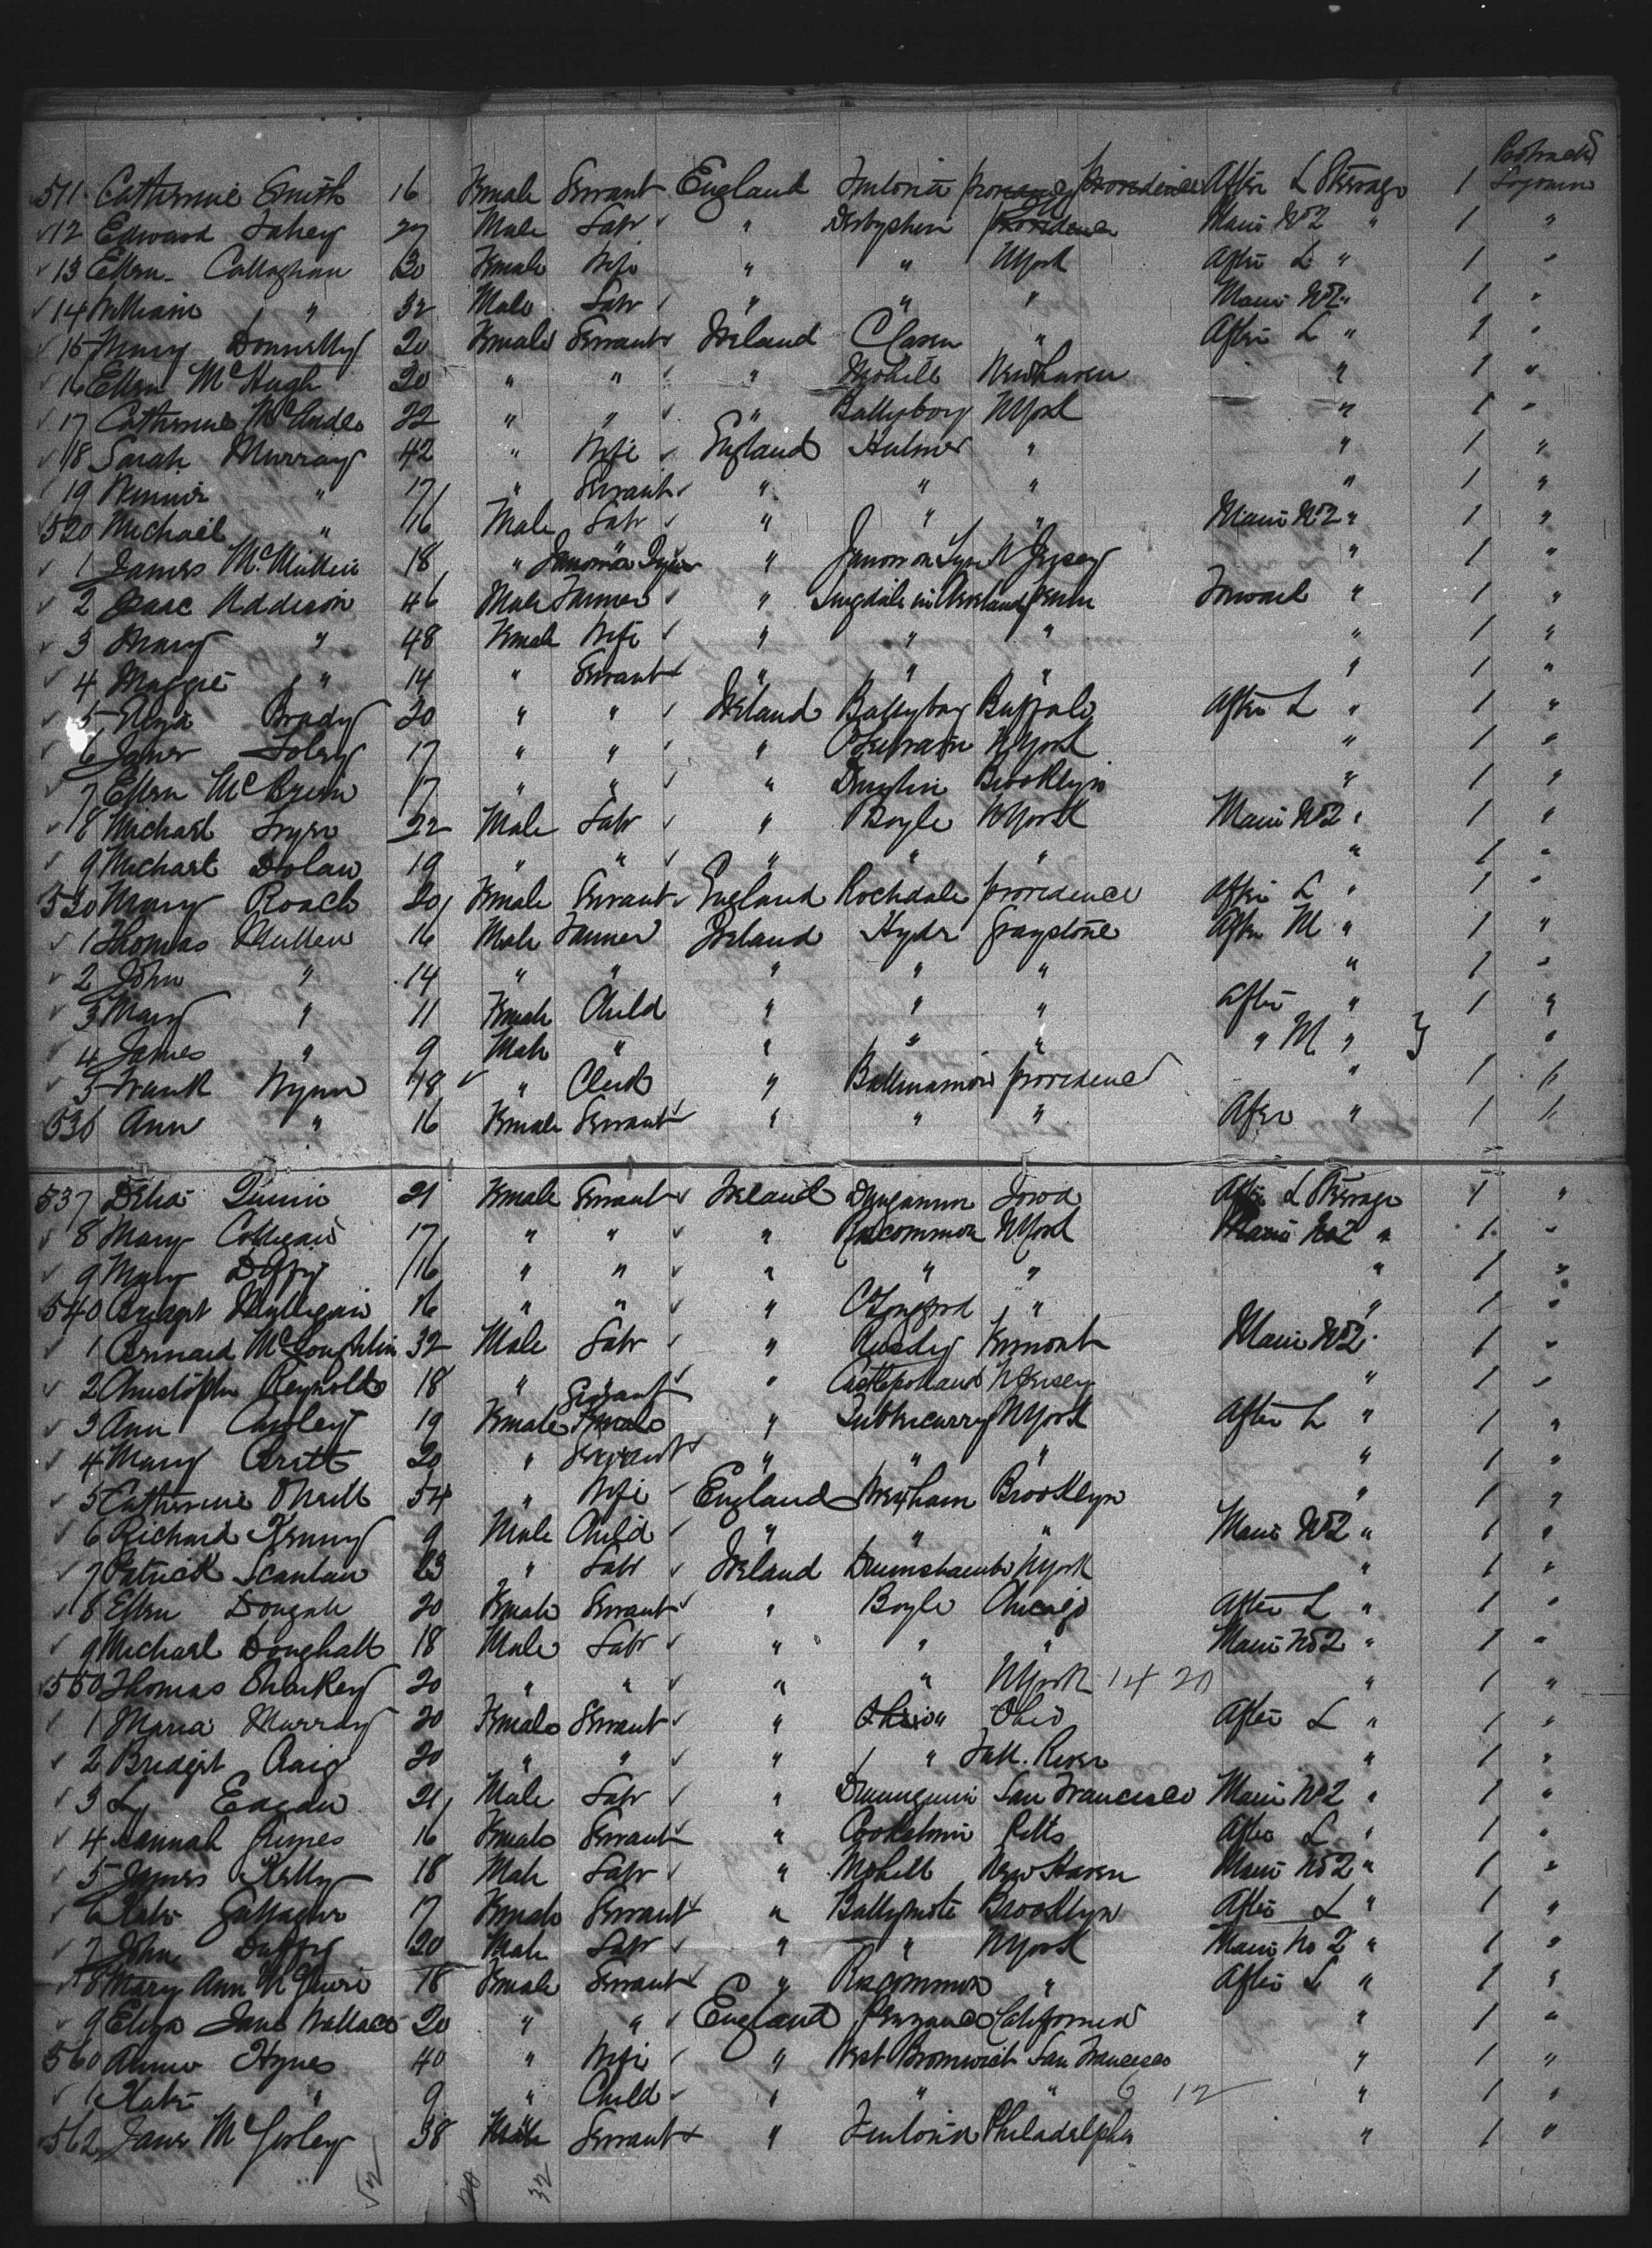 Protracted
511 Catherine Smith 16 Female Servant England Fintona Providence After L Steerage 1 Sojourn
12 Edward Fahey 27 Male Labr " Derbyshire Providence Main No2 " 1 "
13 Ellen Callaghan 30 Female Wife " " NYork After L " 1 "
14 William " 32 Male Labr " " " Main No2 " 1 "
15 Mary Donnelly 20 Female Servant Ireland " After L " 1 "
16 Ellen McHugh 20 " " " Mohill Newhaven " 1 "
17 Catherine 22 " " " Ballyboy NYork " 1 "
18 Sarah Murray 42 " Wife England Hulme " " 1 "
19 Winnie " 17 " Servant " " " " 1 "
520 Michael " 16 Male Labr " " " Main No2 " 1 "
1 James McMullen 18 " " Jarrow on Tyne N Jersey " 1 "
2 Isaac Addison 46 Male Farmer " Forward " 1 "
3 Mary " 48 Female Wife " " " " 1 "
4 Maggie " 14 " Servant " " " " 1 "
5 Brady 20 " " Ireland Ballybay Buffalo After L " 1 "
6 Jane Foley 17 " " " NYork " 1 "
7 Ellen McBrien 17 " " " Brooklyn " 1 "
8 Michael 22 Male Labr " Boyle NYork Main No2 " 1 "
9 Michael Dolan 19 " " " " " " 1 "
530 Mary Roach 20 Female Servant England Rochdale Providence After L " 1 "
1 Thomas Mullen 16 Male Farmer Ireland Hyde Graystone After M " 1 "
2 John " 14 " " " " " " 1 "
3 Mary " 11 Female Child " " " After " 1 "
4 James " 9 Male " " " " " M " "
5 Frank Wynn 18 " Clerk " Ballinamore Providence " 1 "
536 Ann " 16 Female Servant " " " After " 1 "
537 Delia Quinn 21 Female Servant Ireland Dungannon Iowa After L Steerage 1 "
8 Mary Colligan 17 " " " Roscommon NYork Main No2 " 1 "
9 Mary Duffy 16 " " " " " " 1 "
540 Bridget Mulligan 16 " " " C Longford " " 1 "
1 Bernard McLoughlin 32 Male Labr " Vermont Main No2 " 1 "
2 Christopher Reynolds 18 " " " Castlepollard N Jersey " 1 "
3 Ann Cawley 19 Female Servant " Tubbercurry NYork After L " 1 "
4 Mary Britt 20 " Servant " " " " 1 "
5 Catherine ONeill 54 " Wife England Wrexham Brooklyn " 1 "
6 Richard Kenny 9 Male Child " " " Main No2 " 1 "
7 Patrick Scanlan 23 " Labr Ireland Drumshambo NYork " 1 "
8 Ellen 20 Female Servant " Boyle Chicago After L " 1 "
9 Michael Doughall 18 Male Labr " " " Main No2 " 1 "
550 Thomas Sharkey 20 " " " " NYork 14 20 " 1 "
1 Maria Murray 20 Female Servant " " Ohio After L " 1 "
2 Bridget Craig 20 " " " " Fall River " 1 "
3 Eagan 21 Male Labr " San Francisco Main No2 " 1 "
4 Hannah Grimes 16 Female Servant " Cookstown Pitts After L " 1 "
5 James Kelly 18 Male Labr " Mohill New Haven Main No2 " 1 "
6 Kate Gallagher 17 Female Servant " Ballymote Brooklyn After L " 1 "
7 John Duffy 20 Male Labr " " NYork Main No 2 " 1 "
8 Mary Ann McGuire 18 Female Servant " Roscommon " After L " 1 "
9 Eliza Jane Wallace 20 " " England Penzance California " 1 "
560 Annie Hynes 40 " Wife " West Bromwich San Francisco " 1 "
1 Kate " 9 " Child " " " 6 12 " 1 "
562 Jane McGorley 38 Servant " Fintona Philadelphia " 1 "
52 20 32